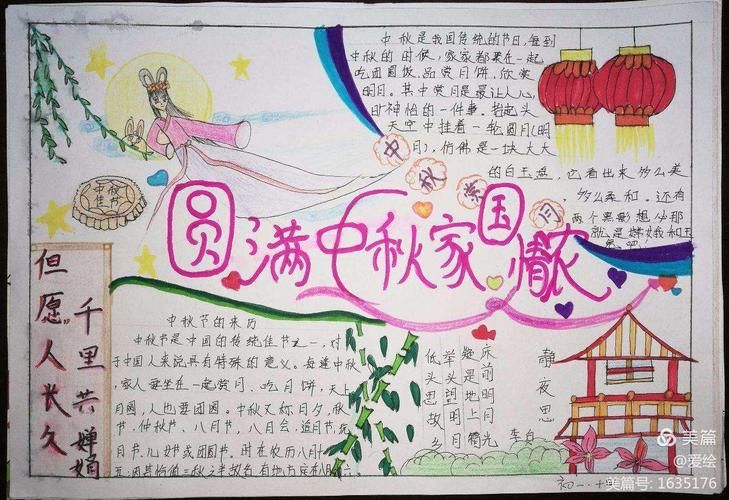 中秋是我国传统的节日，每到
中秋的时候，家家都聚在一起
吃团圆饭，品尝月饼，欣赏
明月。其中赏月是最让人心
旷神怡的一件事。抬起头
天空中挂着一轮圆月(明
月)，仿佛是一块大大
的白玉盘，
多么柔和。还有
两个黑影想必那
就是嫦娥和玉
兔吧！
中
秋
赏
月
中秋
佳节
圆满中秋家国情浓
但愿人长久
千里共婵娟
中秋节的来历
中秋节是中国的传统佳节之一，对
于中国人来说具有特殊的意义。每逢中秋
家人要坐在一起赏月、吃月饼，天上
月圆，人也要团圆。中秋又称月夕，秋
节、仲秋节、八月节、八月会、追月节、玩
月节、女儿节或团圆节。时在农历八月十
五；因其恰值三秋之半故名
静夜思
李白
床前明月光
疑是地上霜
举头望明月
低头思故乡
初一.十
美篇
@爱绘
美篇号: 1635176